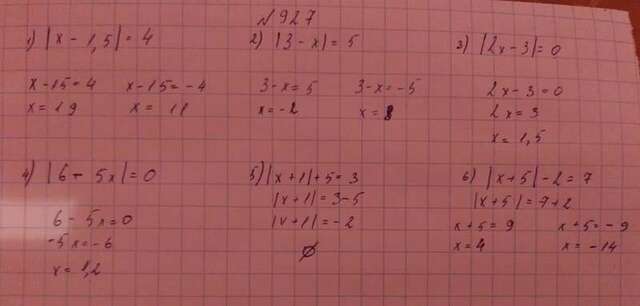 №927
1) |x - 1,5| = 4
x - 15 = 4 x - 15 = -4
x = 19 x = 11
2) |3 - x| = 5
3 - x = 5 3 - x = -5
x = -2 x = 8
3) |2x - 3| = 0
2x - 3 = 0
2x = 3
x = 1,5
4) |6 - 5x| = 0
6 - 5x = 0
-5x = -6
x = 1,2
5) |x + 1| + 5 = 3
|x + 1| = 3 - 5
|x + 1| = -2
∅
6) |x + 5| - 2 = 7
|x + 5| = 7 + 2
x + 5 = 9 x + 5 = -9
x = 4 x = -14